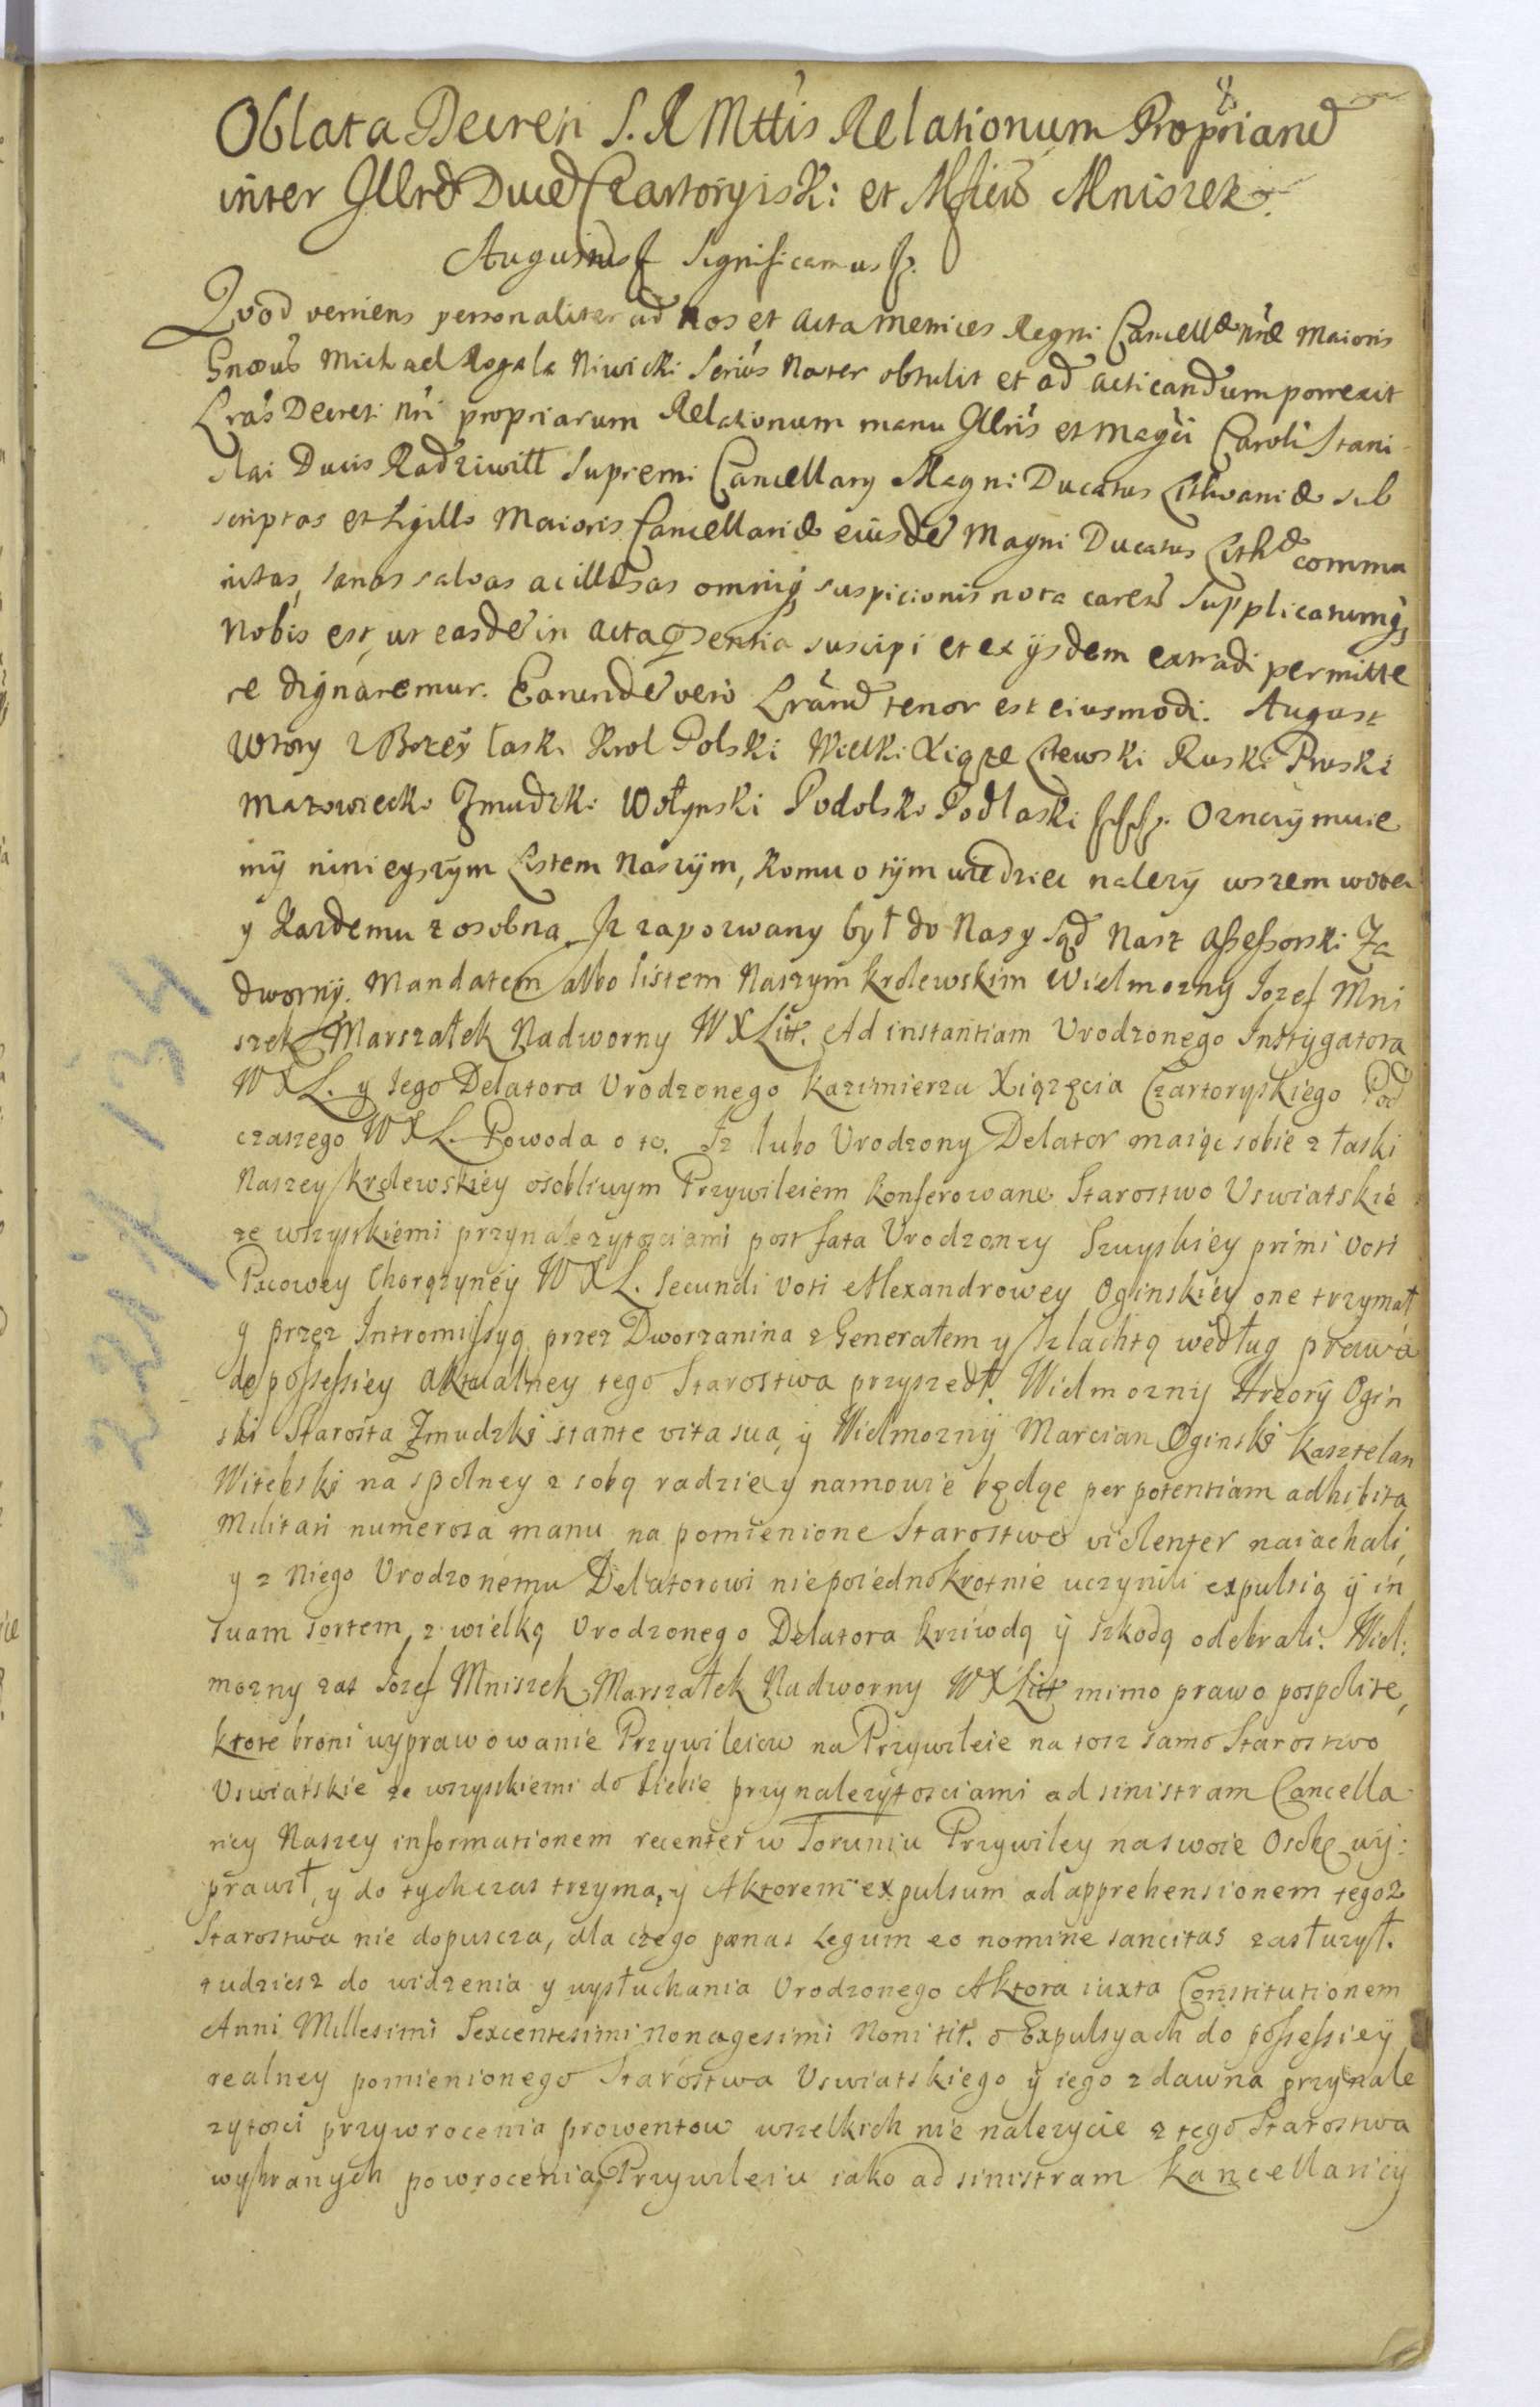 8
Oblata Decreti S. R Mttis Relationum Propriarū
inter Illrẽ Ducẽ Czartoryiski et Mficū Mniszek.
Augustus f Significamus f.
Quod veniens personaliter ad nos et acta metrices Regni Cancellæ nr̃æ maioris
Gnosus Michael Rogala Niwicki Serũs Noster obtulit et ad acticandum porrexit
Lras Decreti nri propriarum Relationum manu Illris et magci Caroli Stani
slai Ducis Radziwiłł Supremi Cancellary Magni Ducatus Lithvaniæ sub
scriptas et Sigillo Maioris Cancellariæ eiusdẽ Magni Ducatus Lithæ commu
nitas, sanas salvas ac illæsas omniq; suspicionis nota carentes Supplicatumq;
Nobis est, ut easdẽ in acta pr̃sentia suscipi et ex ijsdem extradi permitte
re dignaremur. Earundẽ vero Lrarũ tenor est eiusmodi. August
Wtory z Bozey łaski Krol Polski Wielki Xiąze Litewski Ruski Pruski
Mazowiecki Zmudzki Wołynski Podolski Podlaski fffp. Oznaymuie
my ninieyszym Listem Naszym, Komu o tym wiedziec nalezy wszem wobec
y Kazdemu z osobna Jz zapozwany był do Nas y Sąd Nasz Assessorski Za
dworny. Mandatem albo listem Naszym krolewskim Wielmozny Jozef Mni
szek Marszałek Nadworny WXLitt. Ad instantiam Vrodzonego Instygatora
WXL. y Jego Delatora Vrodzonego Kazimierza Xiązęcia Czartoryskiego Pod
czaszego WXL. Powoda o to. Iz lubo Vrodzony Delator maiąc sobie z łaski
Naszey krolewskiey osobliwym Przywileiem konferowane Starostwo Vswiatskie
ze wszystkiemi przynalezytosciami post fata Vrodzoney Szuyskiey primi voti
Pacowey Chorązyney WXL. secundi voti Alexandrowey Oginskiey one trzymał
y przez Intromissyą przez Dworzanina z Generałem y szlachtą według prawa
do possessiey aktualney tego Starostwa przyszedł. Wielmozny Hrzory Ogin
ski Starosta Zmudzki stante vita sua y Wielmozny Marcian Oginski Kasztelan
Witebski na spolney z sobą radzie y namowie będąc per potentiam adhibita
Militari numerosa manu na pomienione Starostwo violenter naiachali,
y z niego Vrodzonemu Delatorowi niepoiednokrotnie uczynili expulsią y in
suam sortem, z wielką Vrodzonego Delatora krziwdą y szkodą odebrali. Wiel:
mozny zas Jozef Mniszek Marszałek Nadworny WXLitt mimo prawo pospolite,
ktore broni wyprawowanie Przywileiow na Przywileie na tosz samo Starostwo
Vswiatskie ze wszystkiemi do siebie przynalezytosciami ad sinistram Cancella
riey Naszey informationem recenter w Toruniu Przywiley na swoie Osobę wy:
prawił, y do tychczas trzyma, y Aktorem expulsum ad apprehensionem tegoz
Starostwa nie dopuscza, dla czego pœnas Legum eo nomine sancitas zasłuzył.
tudziesz do widzenia y wysłuchania Vrodzonego Aktora iuxta Constitutionem
Anni Millesimi Sexcentesimi nonagesimi Noni tit. o Expulsyach do possessiey
realney pomienionego Starostwa Vswiatskiego y iego zdawna przynale
zytosci przywrocenia prowentow wszelkich nie nalezycie z tego Starostwa
wybranych powrocenia, Przywileiu iako ad sinistram Kancellariey